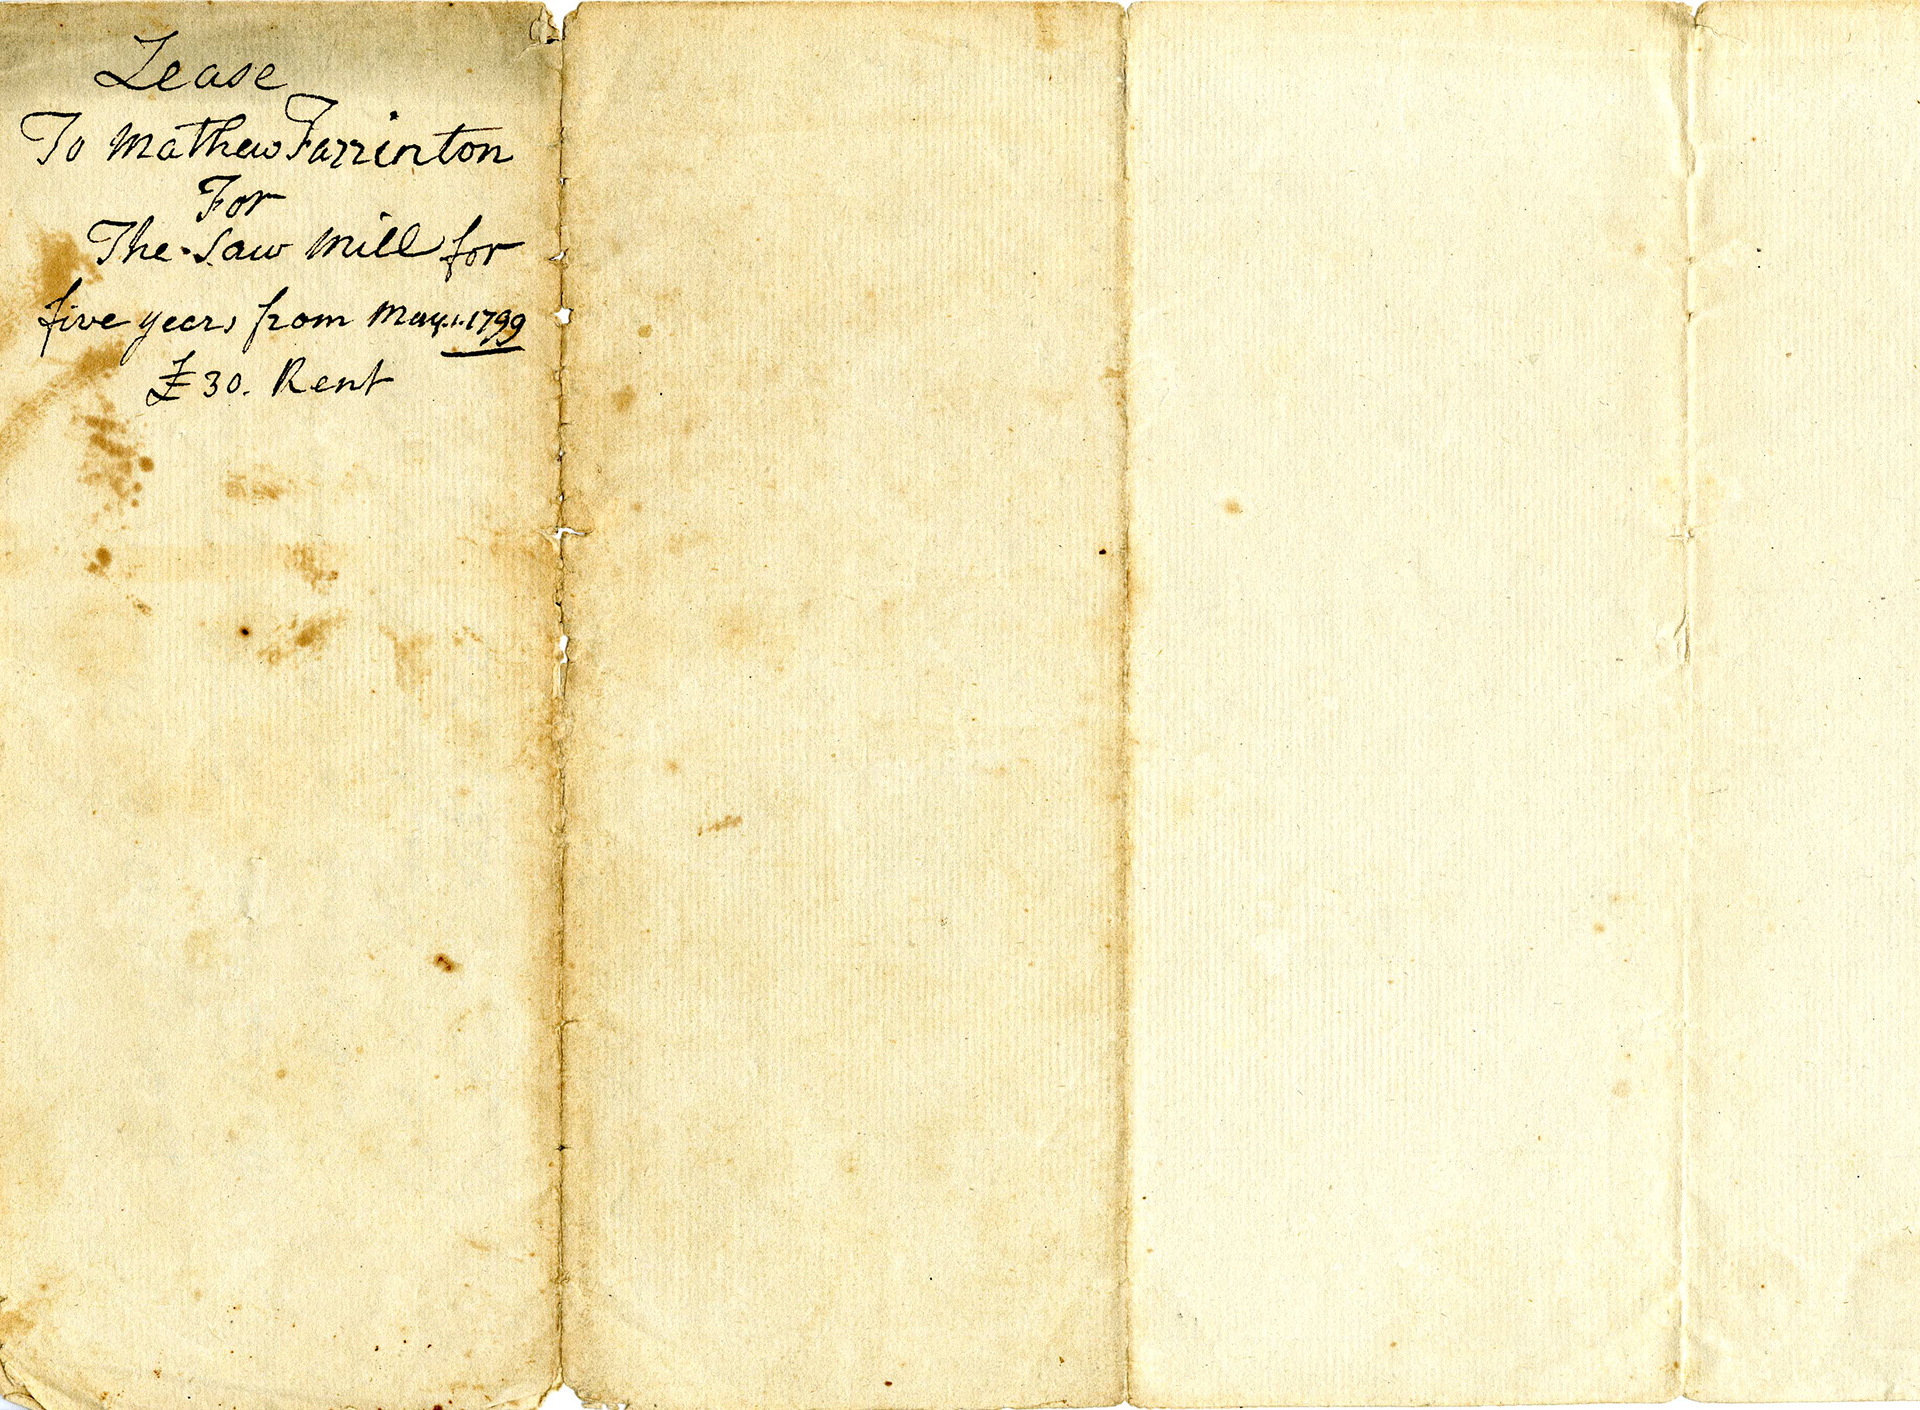 Lease
To Mathew Farrinton
For
The Saw Mill for
five years from May. 1. 1799
£30. Rent